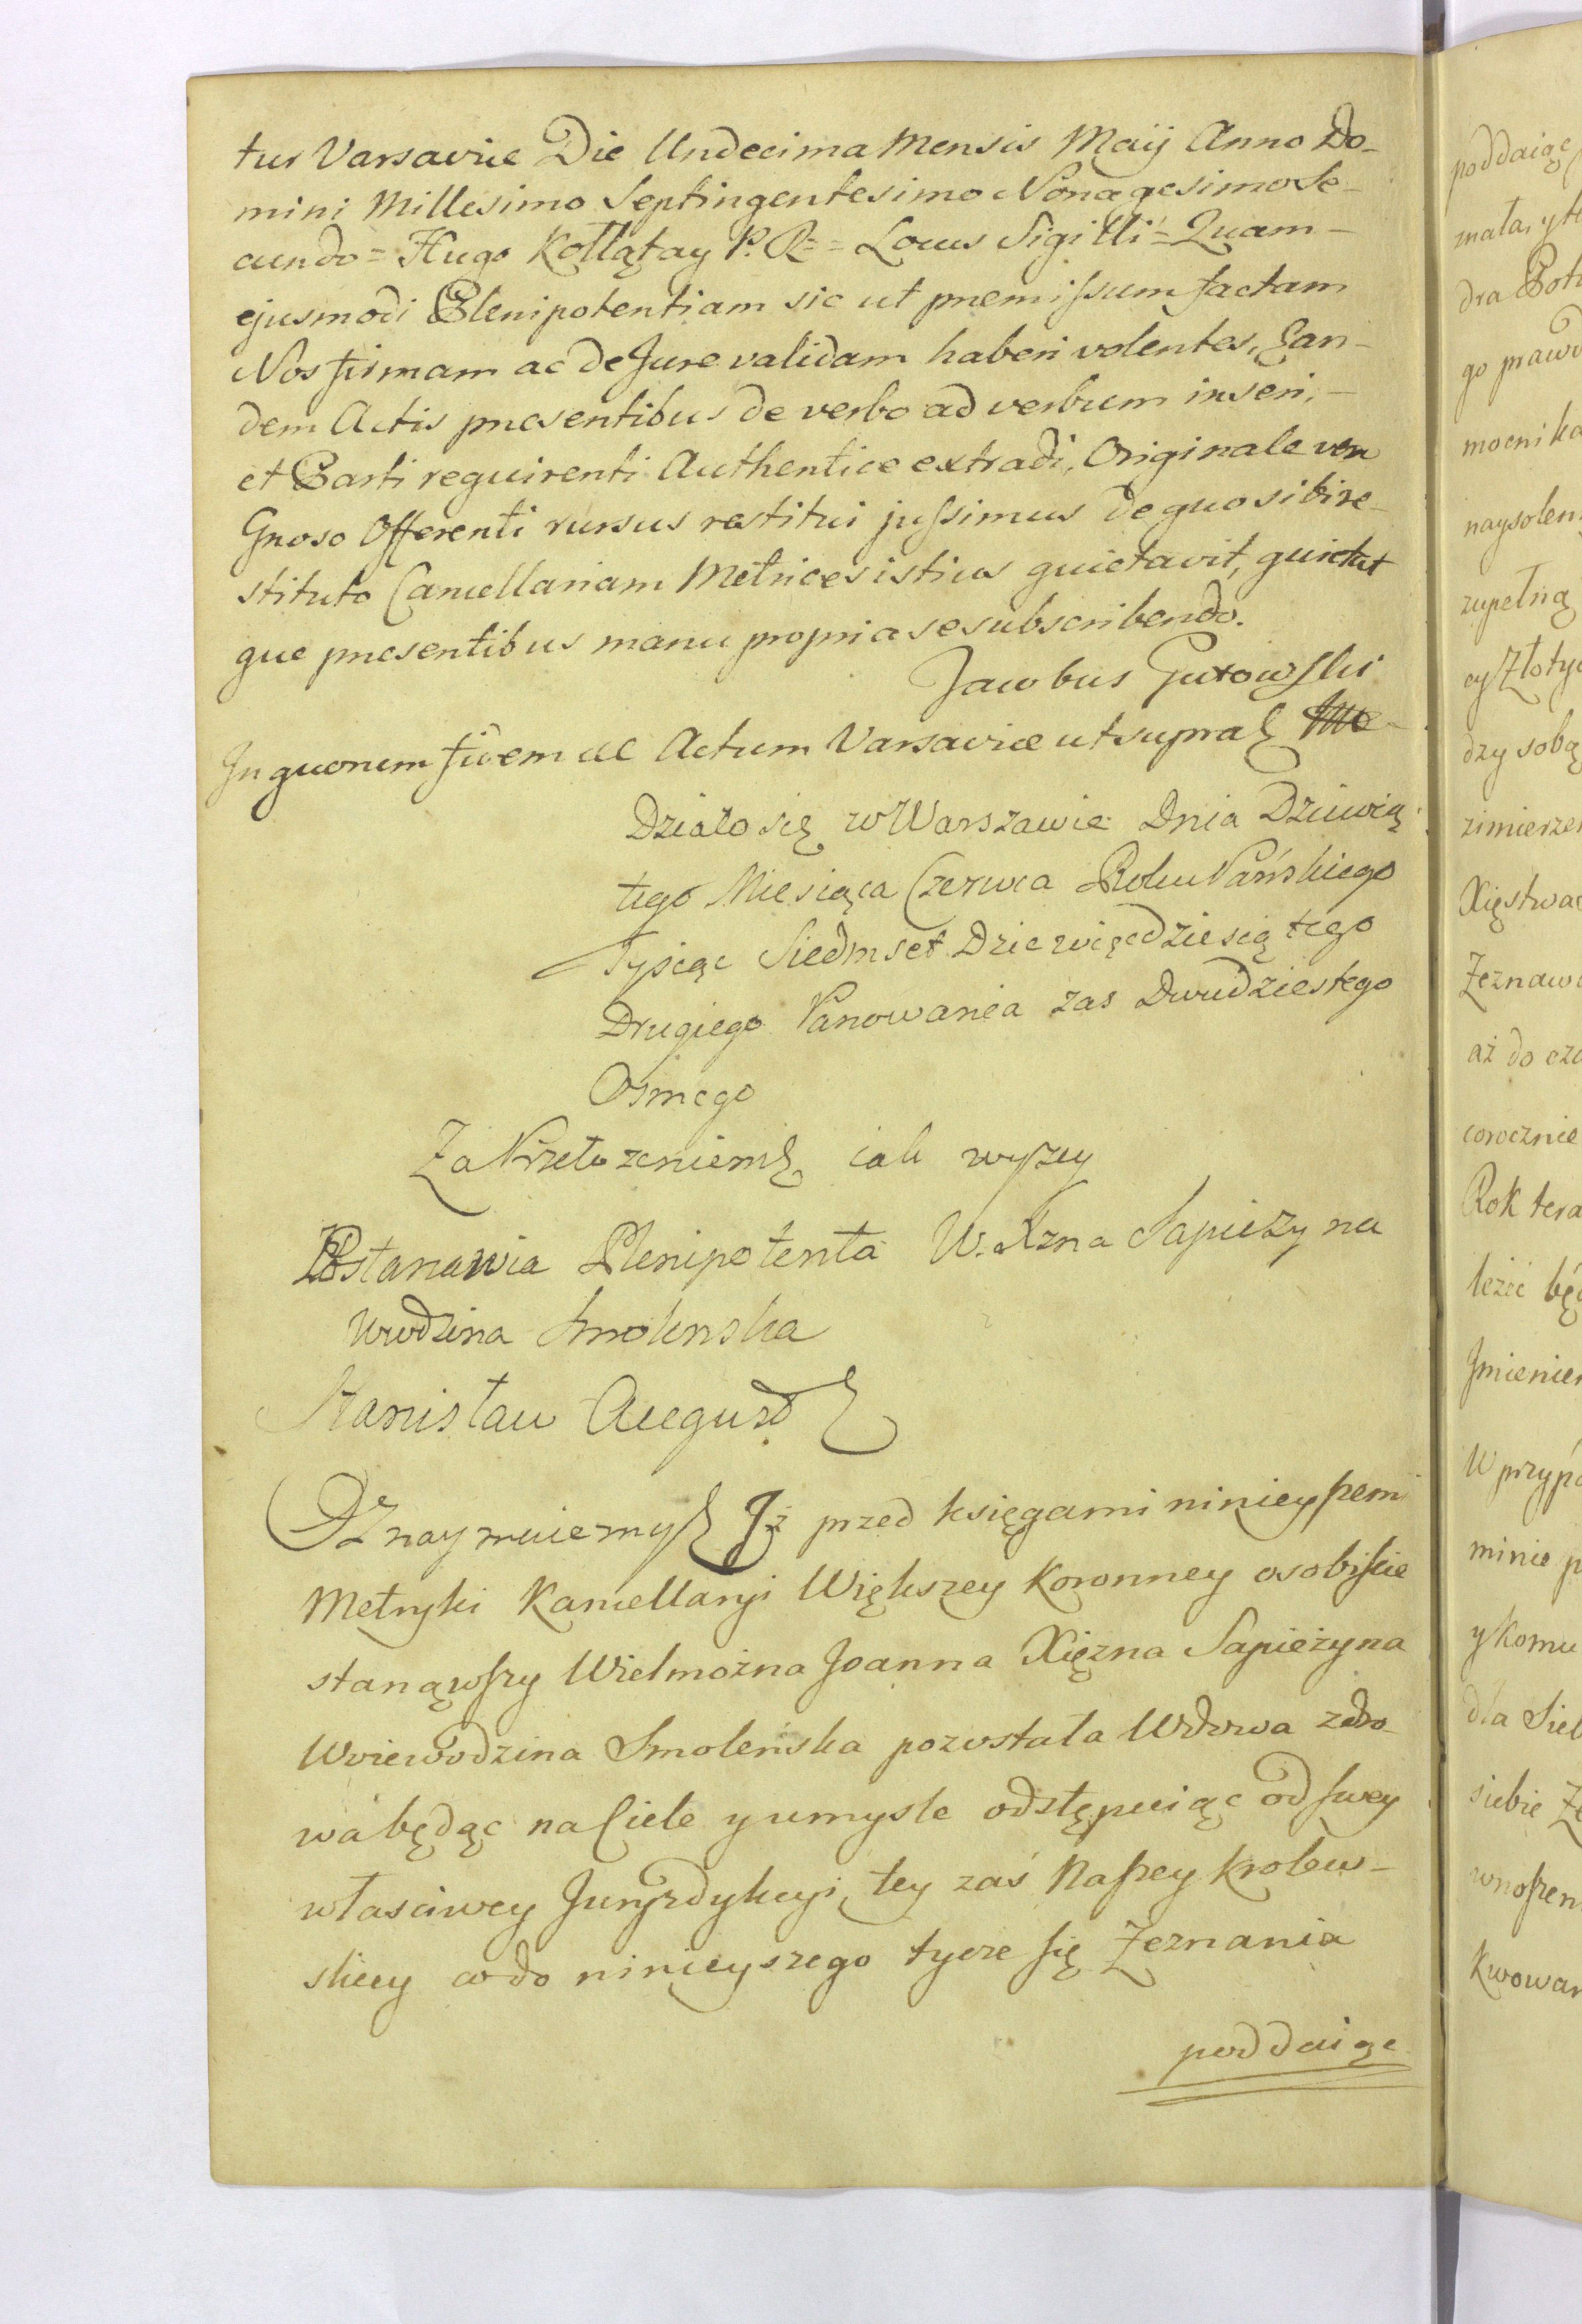 tur Varsaviæ Die Undecima Mensis Maij Anno Do-
mini Millesimo Septingentesimo Nonagesimo Se-
cundo = Hugo Kołłątay P. R. = Locus Sigilli = Quam-
ejusmodi Plenipotentiam sic ut præmissum factam
Nos firmam ac de Jure validam haberi volentes, Ean-
dem Actis præsentibus de verbo ad verbum inseri,-
et Parti requirenti Authentice extradi, Originale vero
Gnoso Offerenti rursus restitui jussimus de quo sibi re-
stituto Cancellariam Metrices istius quietavit, quietat
que præsentibus manu propria se subscribendo.
Jacobus Gutowski
In quorum fidem &c Actum Varsaviæ ut supra
Działo się w Warszawie Dnia Dziewią
tego Miesiąca Czerwca Roku Pańskiego
Tysiąc Siedmset Dziewięcdziesiątego
Drugiego Panowania zas Dwudziestego
Osmego
Za Przełozeniem jak wyzey
Postanawia Plenipotenta W. Xzna Sapiezyna
Wwdzina Smolenska
Stanisław August
Oznaymuiemy Jż przed księgami ninieyszemi
Metryki Kancellaryi Większey Koronney osobiscie
stanąwszy Wielmożna Joanna Xięzna Sapieżyna
Woiewodzina Smoleńska pozostała Wdowa zdro-
wa będąc na Ciele y umysle odstępuiąc od swey
własciwey Juryzdykcyi, tey zaś Naszey Krolew-
skiey co do ninieyszego tycze się Zeznania
poddaiąc
poddaiąc
mata, yte
dra Poto
go prawd
mocnika
naysolen
zupełną
cy Złotyc
dzy sobą
zimierze
Xięstwa
Zeznawa
aż do cza
corocznie
Rok tera
leżeć będ
Jmienie
W przypa
minie p
y komu
dla Sieb
siebie Ze
wnoszen
Kwowan